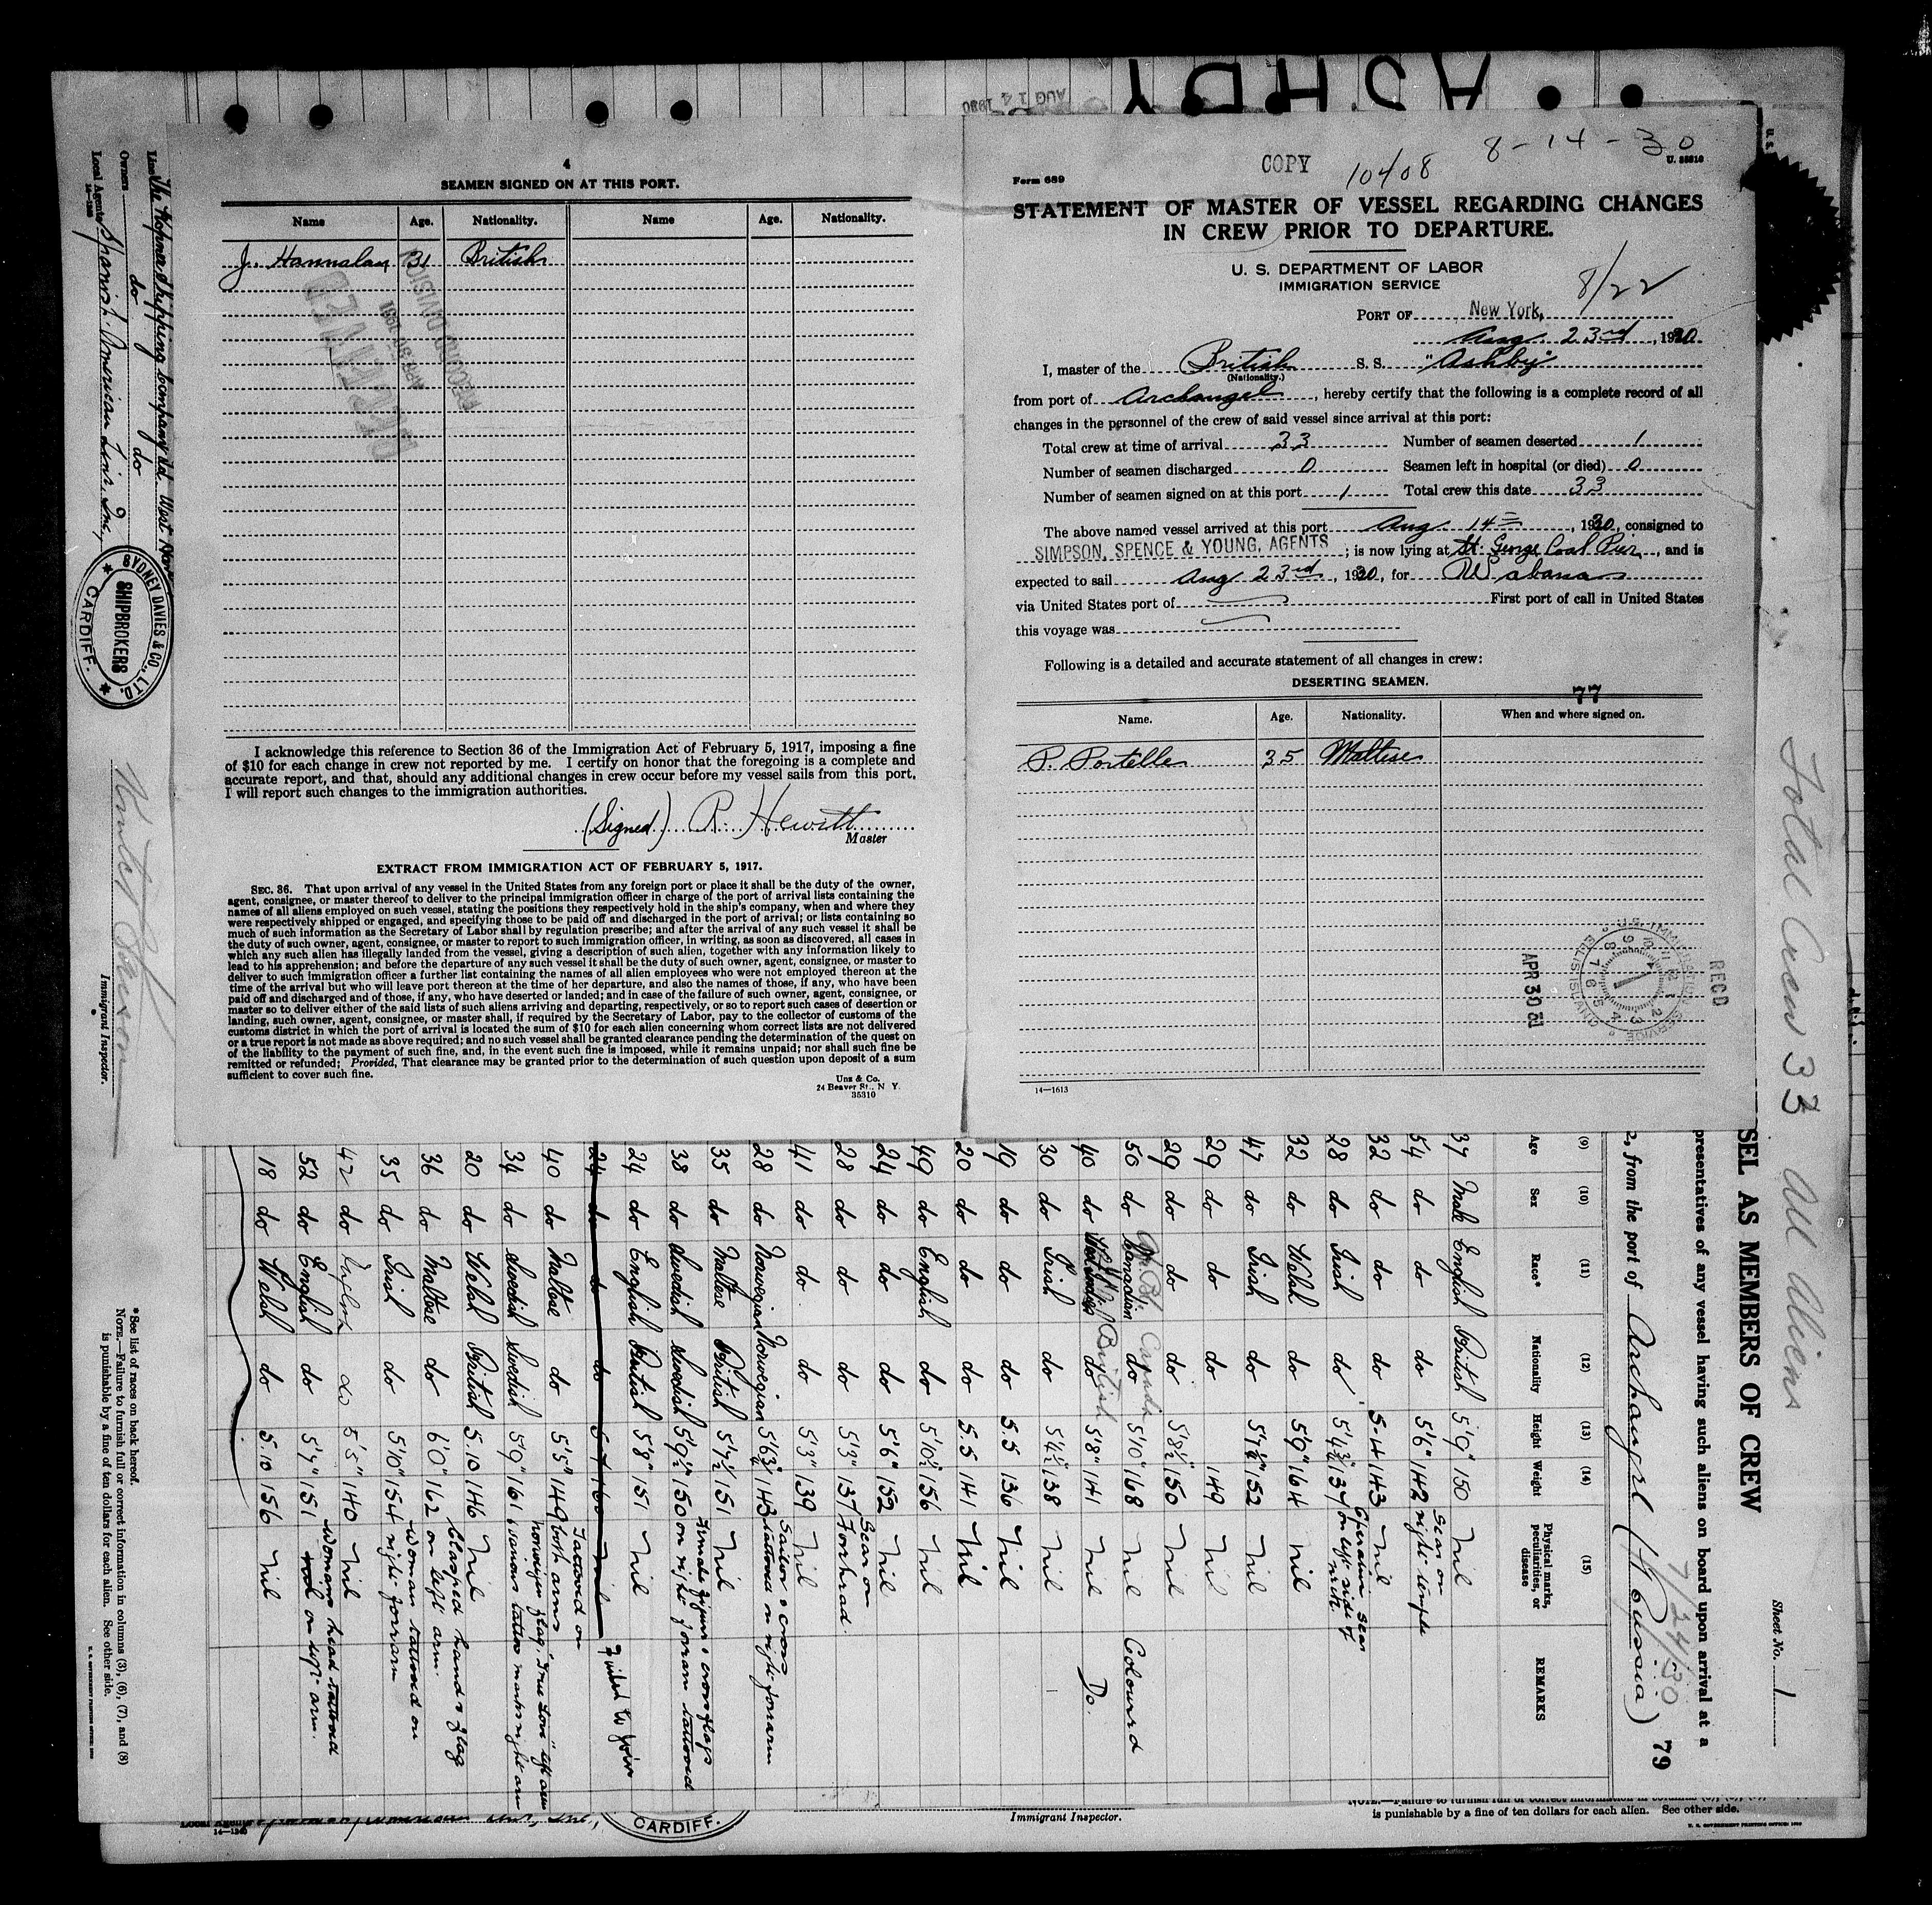 ASHBY
AUG 14 1930
4
SEAMEN SIGNED ON AT THIS PORT.
Name Age. Nationality. Name Age. Nationality.
J. Hannalan 31 British
RECEIVED
APR 30 1931
RECORD DIVISION
I acknowledge this reference to Section 36 of the Immigration Act of February 5, 1917, imposing a fine
of $10 for each change in crew not reported by me. I certify on honor that the foregoing is a complete and
accurate report, and that, should any additional changes in crew occur before my vessel sails from this port,
I will report such changes to the immigration authorities.
(Signed) R. Hewitt
Master
EXTRACT FROM IMMIGRATION ACT OF FEBRUARY 5, 1917.
SEC. 36. That upon arrival of any vessel in the United States from any foreign port or place it shall be the duty of the owner,
agent, consignee, or master thereof to deliver to the principal immigration officer in charge of the port of arrival lists containing the
names of all aliens employed on such vessel, stating the positions they respectively hold in the ship's company, when and where they
were respectively shipped or engaged, and specifying those to be paid off and discharged in the port of arrival; or lists containing so
much of such information as the Secretary of Labor shall by regulation prescribe; and after the arrival of any such vessel it shall be
the duty of such owner, agent, consignee, or master to report to such immigration officer, in writing, as soon as discovered, all cases in
which any such alien has illegally landed from the vessel, giving a description of such alien, together with any information likely to
lead to his apprehension; and before the departure of any such vessel it shall be the duty of such owner, agent, consignee, or master to
deliver to such immigration officer a further list containing the names of all alien employees who were not employed thereon at the
time of the arrival but who will leave port thereon at the time of her departure, and also the names of those, if any, who have been
paid off and discharged and of those, if any, who have deserted or landed; and in case of the failure of such owner, agent, consignee, or
master so to deliver either of the said lists of such aliens arriving and departing, respectively, or so to report such cases of desertion or
landing, such owner, agent, consignee, or master shall, if required by the Secretary of Labor, pay to the collector of customs of the
customs district in which the port of arrival is located the sum of $10 for each alien concerning whom correct lists are not delivered
or a true report is not made as above required; and no such vessel shall be granted clearance pending the determination of the quest on
of the liability to the payment of such fine, and, in the event such fine is imposed, while it remains unpaid; nor shall such fine be
remitted or refunded; Provided, That clearance may be granted prior to the determination of such question upon deposit of a sum
sufficient to cover such fine.
Unz & Co.
24 Beaver St., N Y.
35310
8-14-30
COPY 10408
U. 35310
Form 689
STATEMENT OF MASTER OF VESSEL REGARDING CHANGES
IN CREW PRIOR TO DEPARTURE.
U. S. DEPARTMENT OF LABOR
IMMIGRATION SERVICE
8/22
PORT OF New York,
Aug. 23rd, 1930
I, master of the British S. S. "Ashby"
(Nationality.)
from port of Archangel, hereby certify that the following is a complete record of all
changes in the personnel of the crew of said vessel since arrival at this port:
Total crew at time of arrival 33 Number of seamen deserted 1
Number of seamen discharged 0 Seamen left in hospital (or died) 0
Number of seamen signed on at this port 1 Total crew this date 33
The above named vessel arrived at this port Aug. 14th, 1930, consigned to
SIMPSON, SPENCE & YOUNG, AGENTS; is now lying at St. George Coal Pier, and is
expected to sail Aug 23rd, 1930, for Wabana
via United States port of First port of call in United States
this voyage was
Following is a detailed and accurate statement of all changes in crew:
DESERTING SEAMEN.
77
Name. Age. Nationality. When and where signed on.
P. Portelle 35 Maltese
REC'D
U.S. IMMIGRATION SERVICE
ELLIS ISLAND
APR 30 31
14—1613
Total Crew 33 All Aliens
Sheet No. 1
SEL AS MEMBERS OF CREW
presentatives of any vessel having such aliens on board upon arrival at a
7/24/30
, from the port of Archangel (Russia) 79
(9) (10) (11) (12) (13) (14) (15)
Age Sex Race* Nationality Height Weight Physical marks, peculiarities, or disease REMARKS
37 Male English British 5'9" 150 Nil
54 do do do 5'6" 142 Scar on right temple
32 do do do 5-4 143 Nil
28 do Irish do 5'4¾ 137 Operation scar on left side of neck
32 do Welsh do 5'9" 164 Nil
47 do Irish do 5'7½" 152 Nil
29 do do do 149 Nil
29 do do do 5'8½" 150 Nil
50 do Canadian do Canada 5'10" 168 Nil Coloured
40 do do British 5'8" 141 Nil Do.
30 do Irish do 5'4½" 138 Nil
19 do do do 5.5 136 Nil
20 do do do 5.5 141 Nil
49 do English do 5'10½ 156 Nil
24 do do do 5'6" 152 Nil
28 do do do 5'3" 137 Scar on Forehead.
41 do do do 5'3" 139 Nil
28 do Norwegian Norwegian 5'6¾ 143 Sailor & cross tattooed on right forearm
35 do Maltese British 5'7½ 151 Nil
38 do Swedish Swedish 5'9½" 150 Female figure & cross flags on right forearm tattooed
24 do English British 5'8" 151 Nil
24 do do do 5-7 160 Nil Failed to join
40 do Maltese do 5'5" 149 Tattooed on both arms
34 do Swedish Swedish 5'9" 161 Norwegian flag, "True Love" left arm various tattoo marks right arm
20 do Welsh British 5.10 146 Nil
36 do Maltese do 6'0" 162 Clasped hands & flag on left arm.
35 do Irish do 5'10" 154 Woman tattooed on right forearm
42 do English do 5'5" 140 Nil
52 do English do 5'4" 151 Womans head tattooed on left arm.
18 do Welsh do 5.10 156 Nil
*See list of races on back hereof.
NOTE.—Failure to furnish full or correct information in columns (3), (6), (7), and (8)
is punishable by a fine of ten dollars for each alien. See other side.
Line The Ropner Shipping Company Ld. West
Owners do do do
Local Agents Spanish-American Line, Inc.,
14—1240
SYDNEY DAVIES & CO., LTD.
SHIPBROKERS
CARDIFF.
Immigrant Inspector.
CARDIFF.
14—1240
Immigrant Inspector.
is punishable by a fine of ten dollars for each alien. See other side.